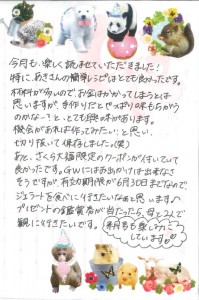 今月も、楽しく読ませていただきました!
特に、あきさんの簡単レシピはとても良かったです。
材料が多いので、お金はかかってしまうとは
思いますが、手作りだとやっぱり味もちがう
のかな…?と、とても興味があります。
機会があれば作ってみたいなと思い、
切り抜いて保存しました。(笑)
あと、さくら大福限定のクーポンが付いていて
良かったです。GWにはお出かけは出来なさ
そうですが、有効期限が6月30日までなので、
ジェラートを食べに行きたいなぁと思います♪
プレゼントの鑑賞券が当たったら、母と2人で
観に行きたいです。
来月号も楽しみに
していますね